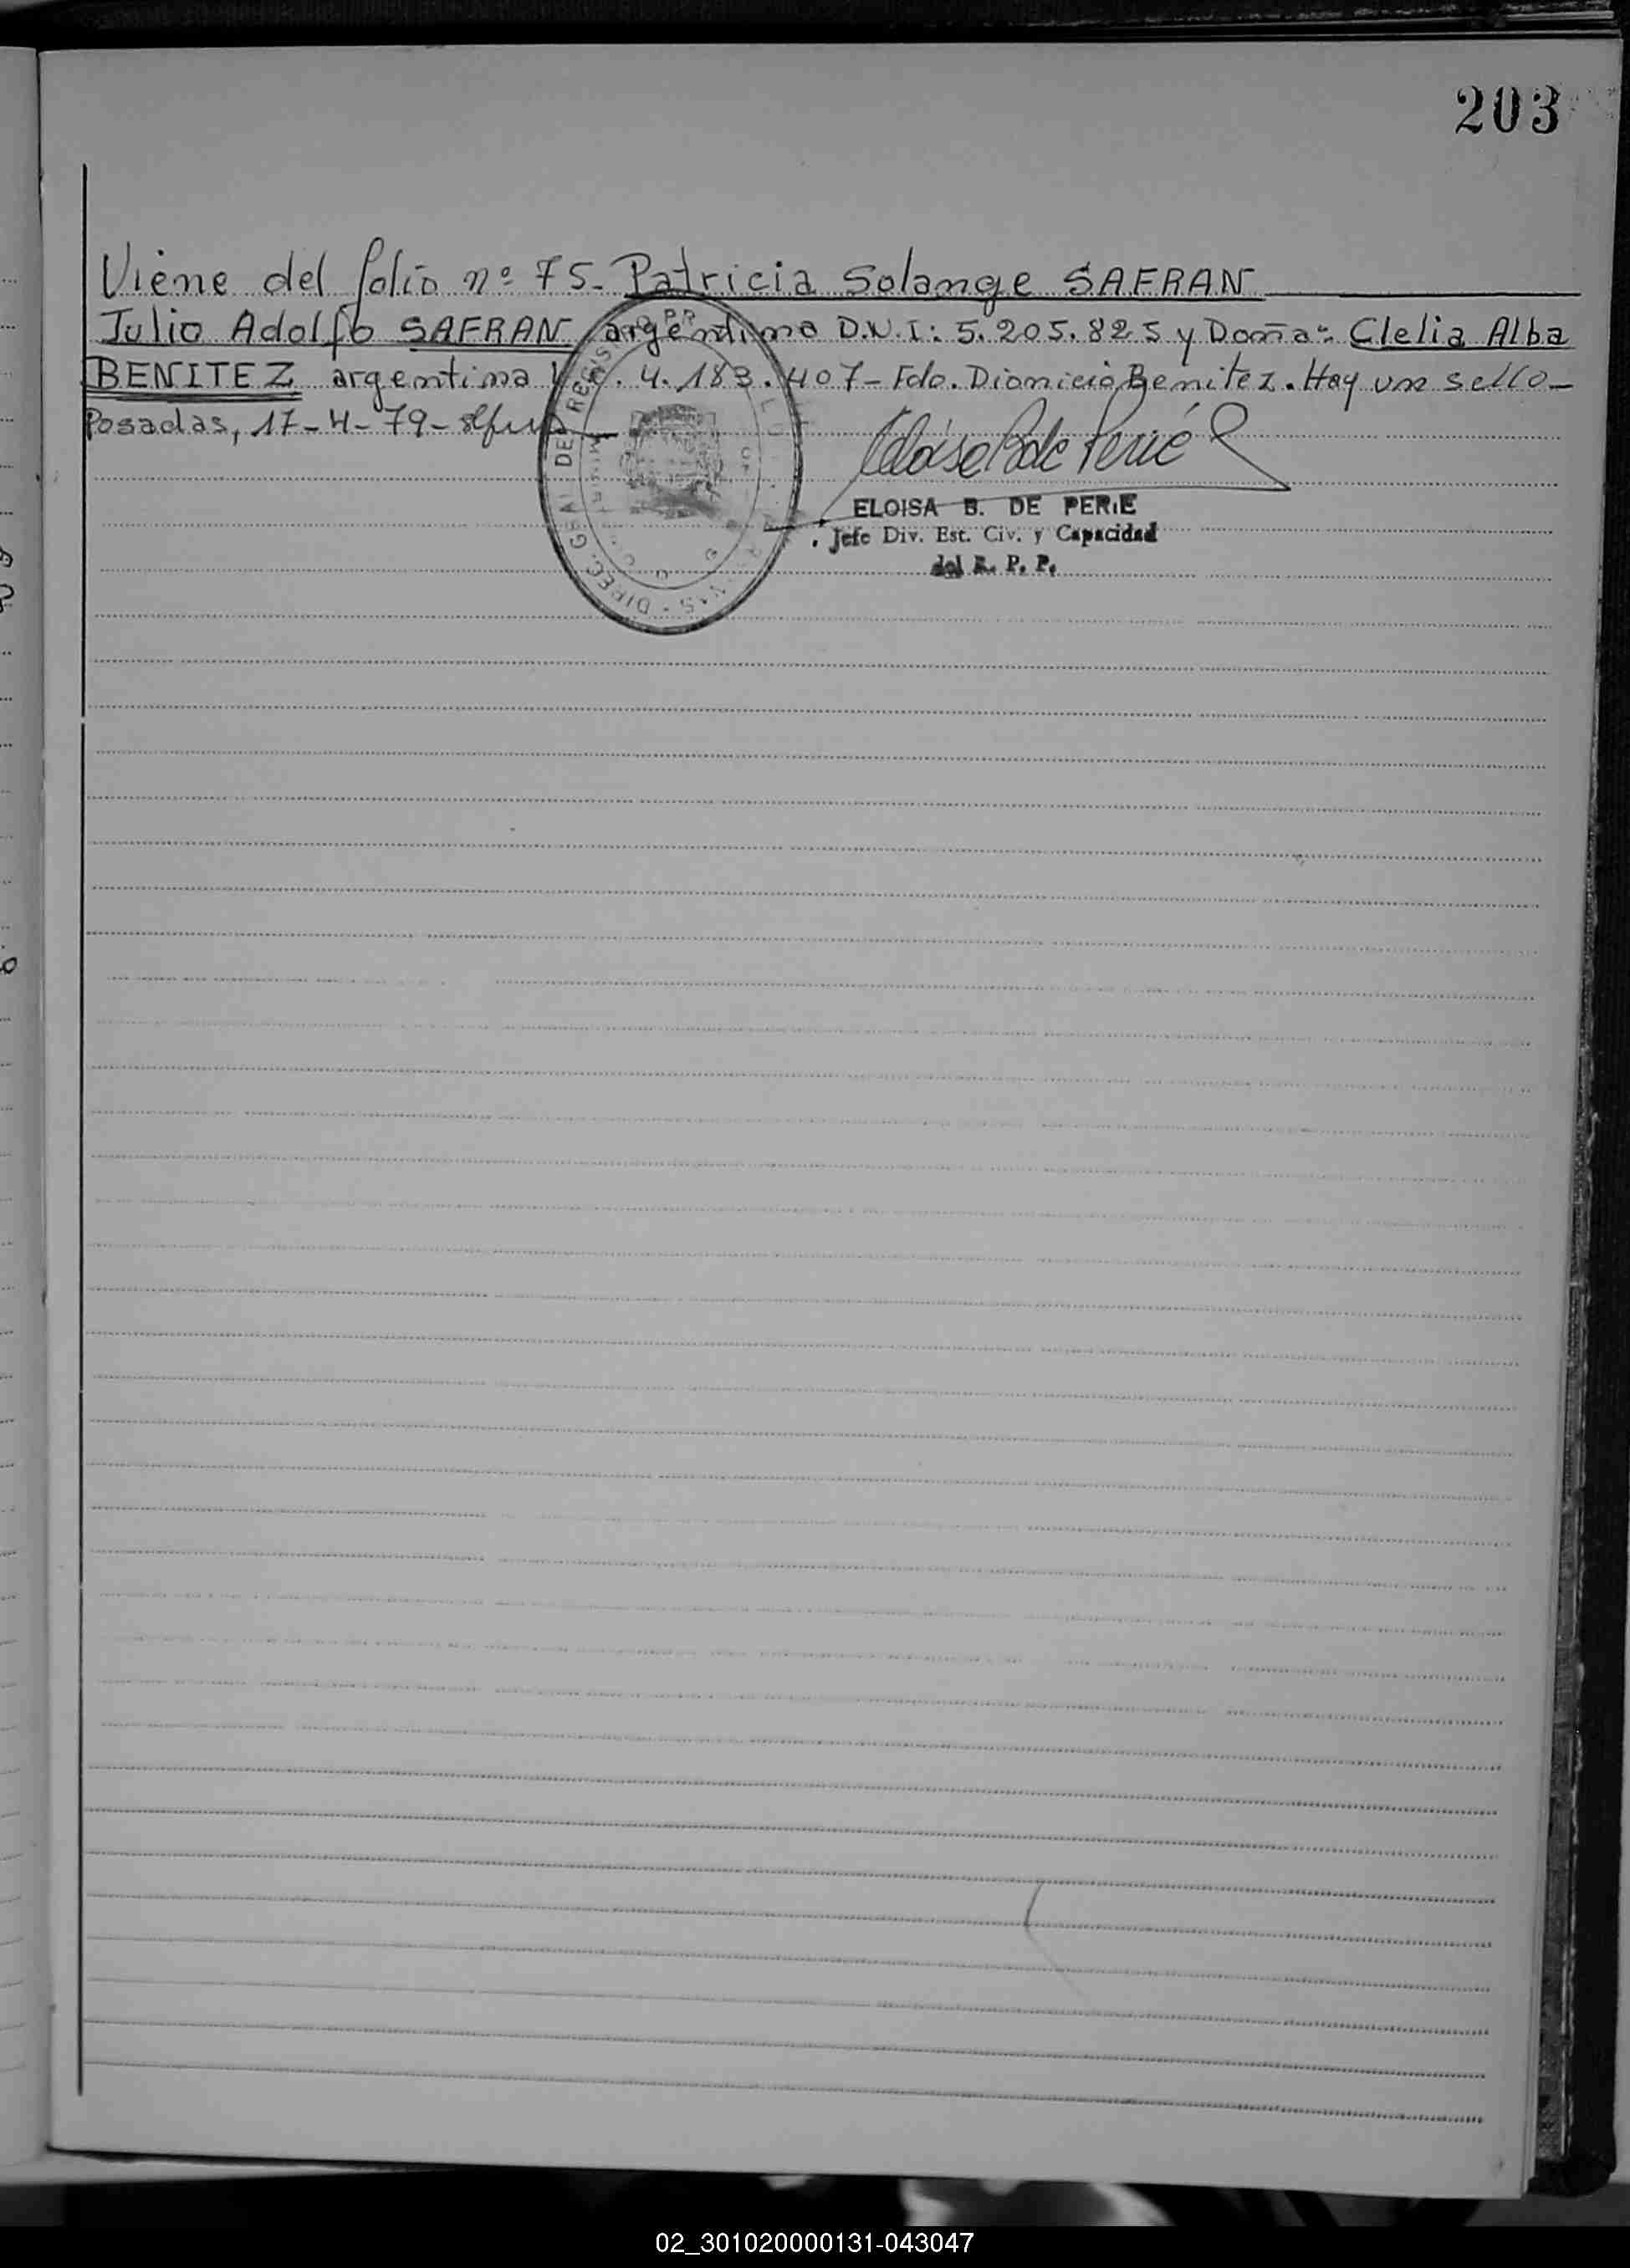 203
Viene del folio nº 75- Patricia Solange SAFRAN
Julio Adolfo SAFRAN argentino D.N.I: 5.205.825 y Doña: Clelia Alba
BENITEZ argentina 4.183.407- Fdo. Dionicio Benitez. Hay un sello-
Posadas, 17-4-79-
ELOISA B. DE PERIE
Jefe Div. Est. Civ. y Capacidad
del R. P. P.
02_301020000131-043047